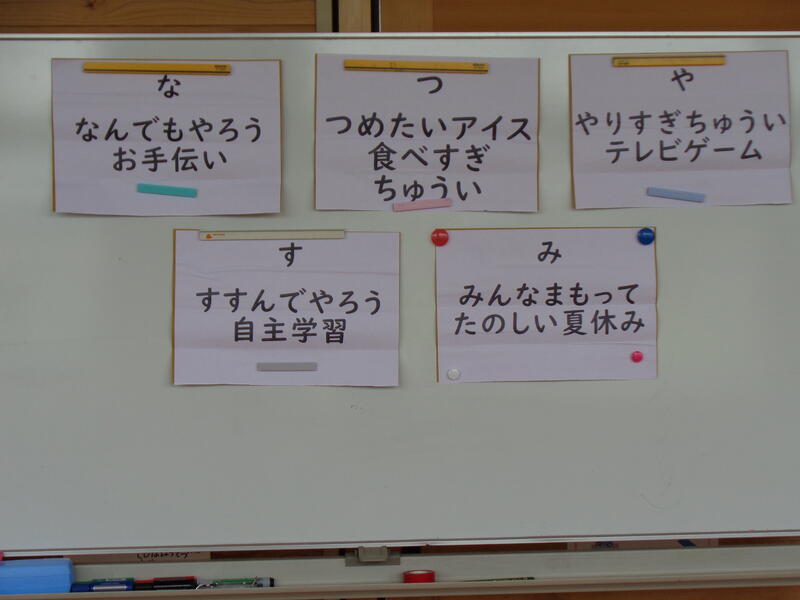 な
なんでもやろう
お手伝い
つ
つめたいアイス
食べすぎ
ちゅうい
や
やりすぎちゅうい
テレビゲーム
す
すすんでやろう
自主学習
み
みんなまもって
たのしい夏休み